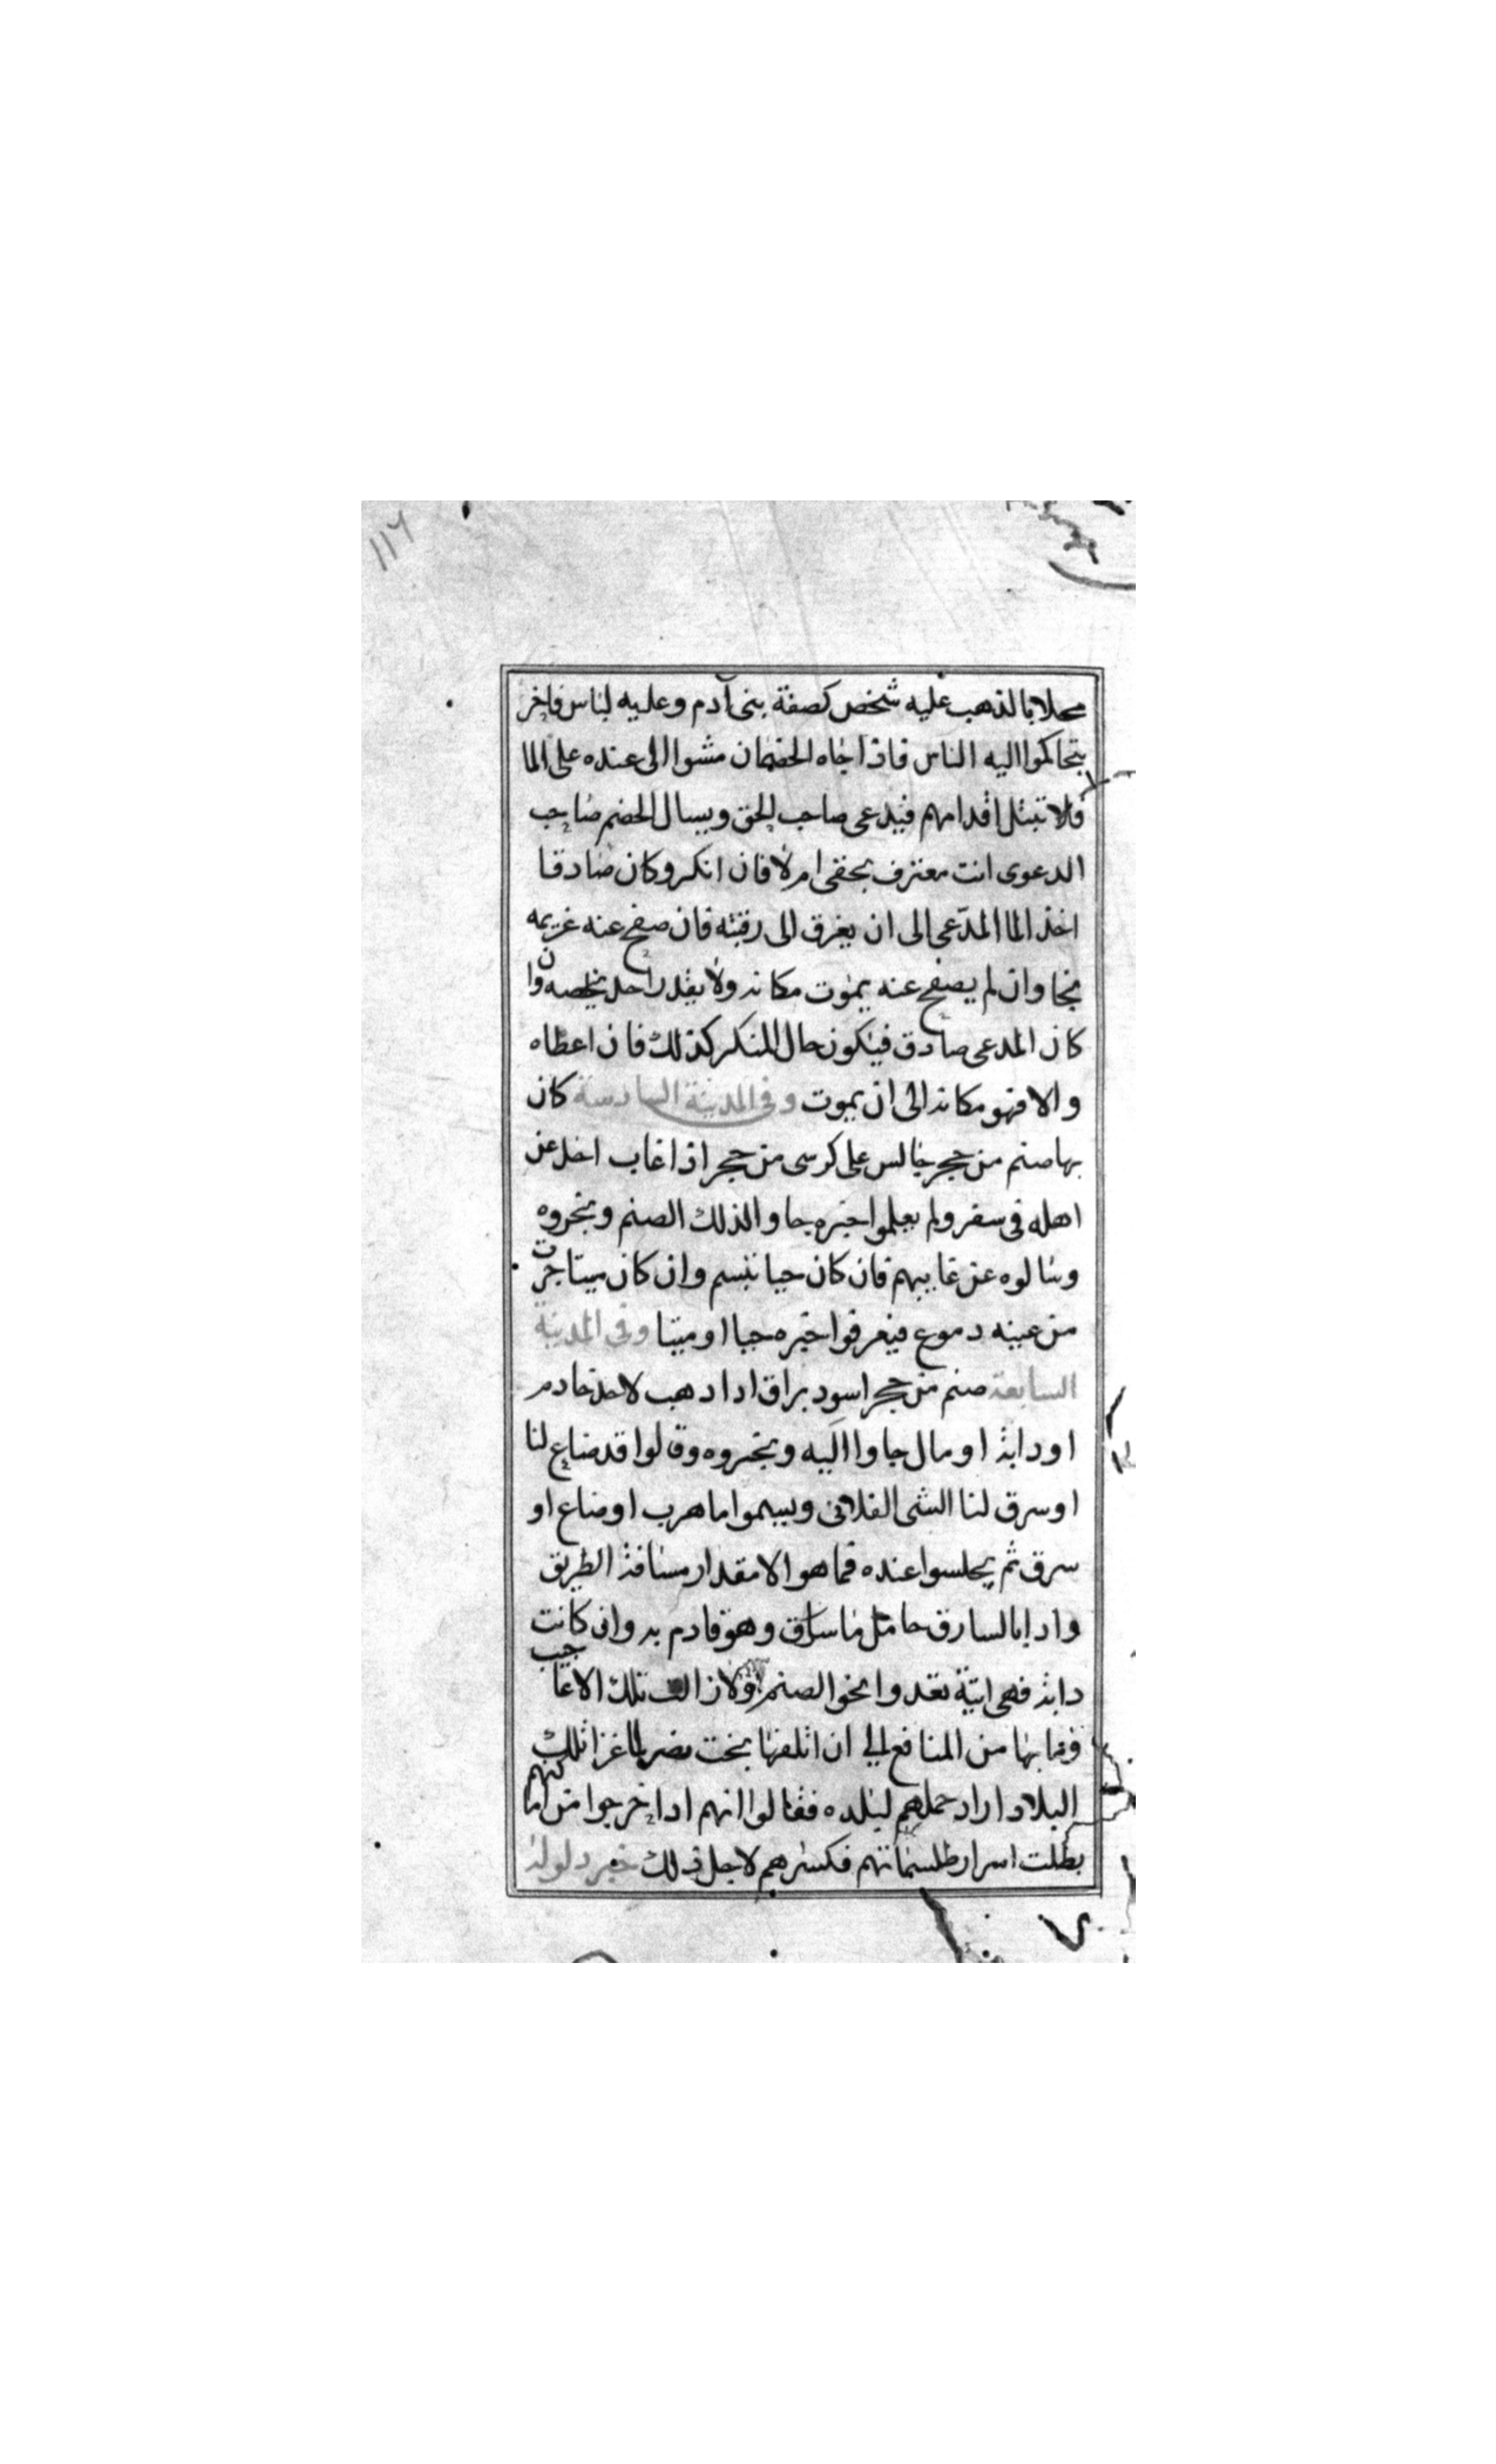 ١١٦
محلا بالذهب عليه شخص كصفة بنى آدم وعليه لباس فاخر
يتحاكموا اليه الناس فاذا جاه الخصمان مشوا الى عنده على الما
فلا تبتل اقدامهم فيدعى صاحب الحق ويسال الخصم صاحب
الدعوى انت معترف بحقى ام لا فان انكر وكان صادقا
اخذ الما المدّعى الى ان يغرق الى رقبته فان صفح عنه غريمه
نجا وان لم يصفح عنه يموت مكانه ولا يقدر احد يخلصه وان
كان المدعى صادق فيكون حال المنكر كذلك فان اعطاه
والا فهو مكانه الى ان يموت وفى المدينة السادسة كان
بها صنم من حجر جالس على كرسى من حجر اذا غاب احد عن
اهله فى سفر ولم يعلموا خبره جاوا لذلك الصنم وبخروه
وسالوه عن غايبهم فان كان حيا تبسم وان كان ميتا جرت
من عينه دموع فيعرفوا خبره حيا او ميتا وفى المدينة
السابعة صنم من حجر اسود براق اذا ذهب لاحد خادم
او دابة او مال جاوا اليه وبخروه وقالوا قد ضاع لنا
او سرق لنا الشى الفلانى ويسموا ما هرب او ضاع او
سرق ثم يجلسوا عنده فما هو الا مقدار مسافة الطريق
واذا بالسارق حامل ما سرق وهو قادم به وان كانت
دابة فهى اتية تعدوا نحو الصنم ولا زالت تلك الاعاجيب
وما بها من المنافع الى ان اتلفها بخت نصر لما غزا تلك
البلاد اراد حملهم لبلده فقالوا انهم اذا خرجوا من اماكنهم
بطلت اسرار طلسماتهم فكسرهم لاجل ذلك خبر دلوكة